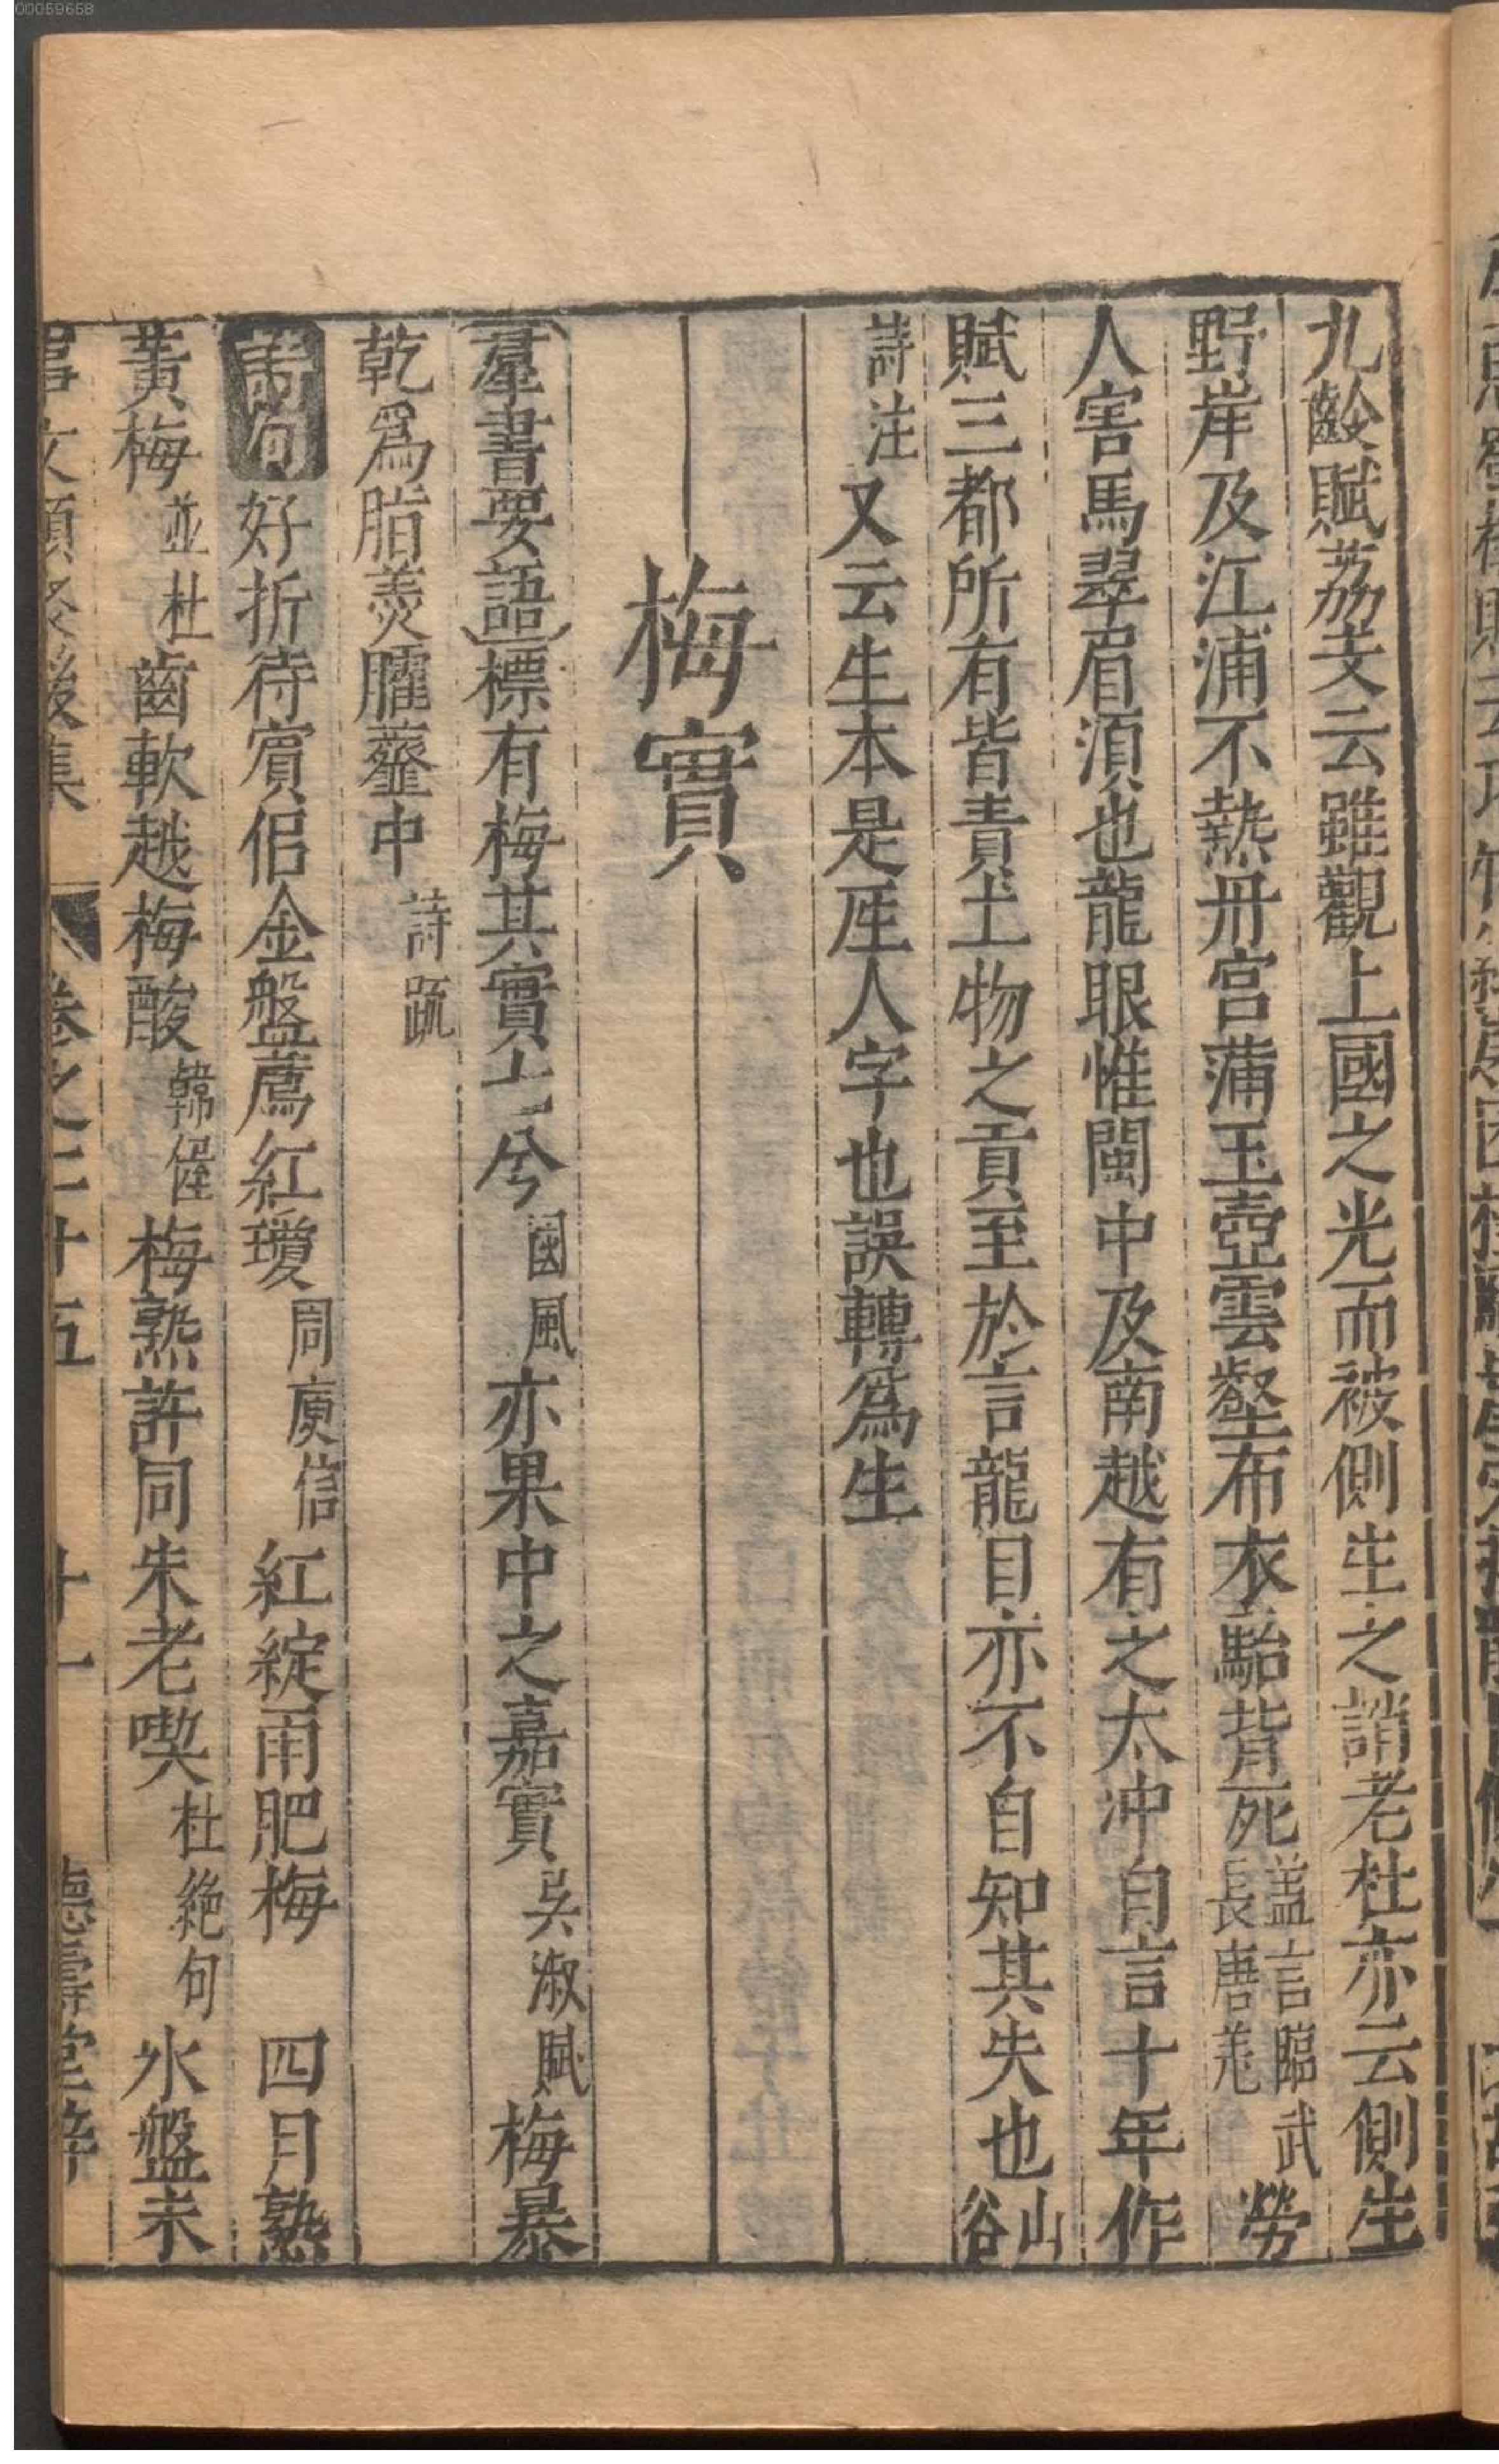 00059658
九齡賦荔支云雖觀上國之光而被側生之誚老杜亦云側生
野岸及江浦不熟丹宮蒲玉壺雲壑布衣駘背死蓋言臨武長唐羌勞
人害馬翠眉須也龍眼惟閩中及南越有之太冲自言十年作
賦三都所有皆責土物之貢至於言龍目亦不自知其失也山谷
詩注又云生本是厓人字也誤轉爲生
梅實
羣書要語標有梅其實七兮國風亦果中之嘉實吳淑賦梅暴
乾爲脂羮臛虀中詩疏
詩句好折待賔侣金盤薦紅瓊周庾信紅綻雨肥梅 四月熟
黃梅並杜齒軟越梅酸韓偓梅熟許同朱老喫杜絶句氷盤未
事文類聚後集 卷之二十五 廿一 德壽堂梓